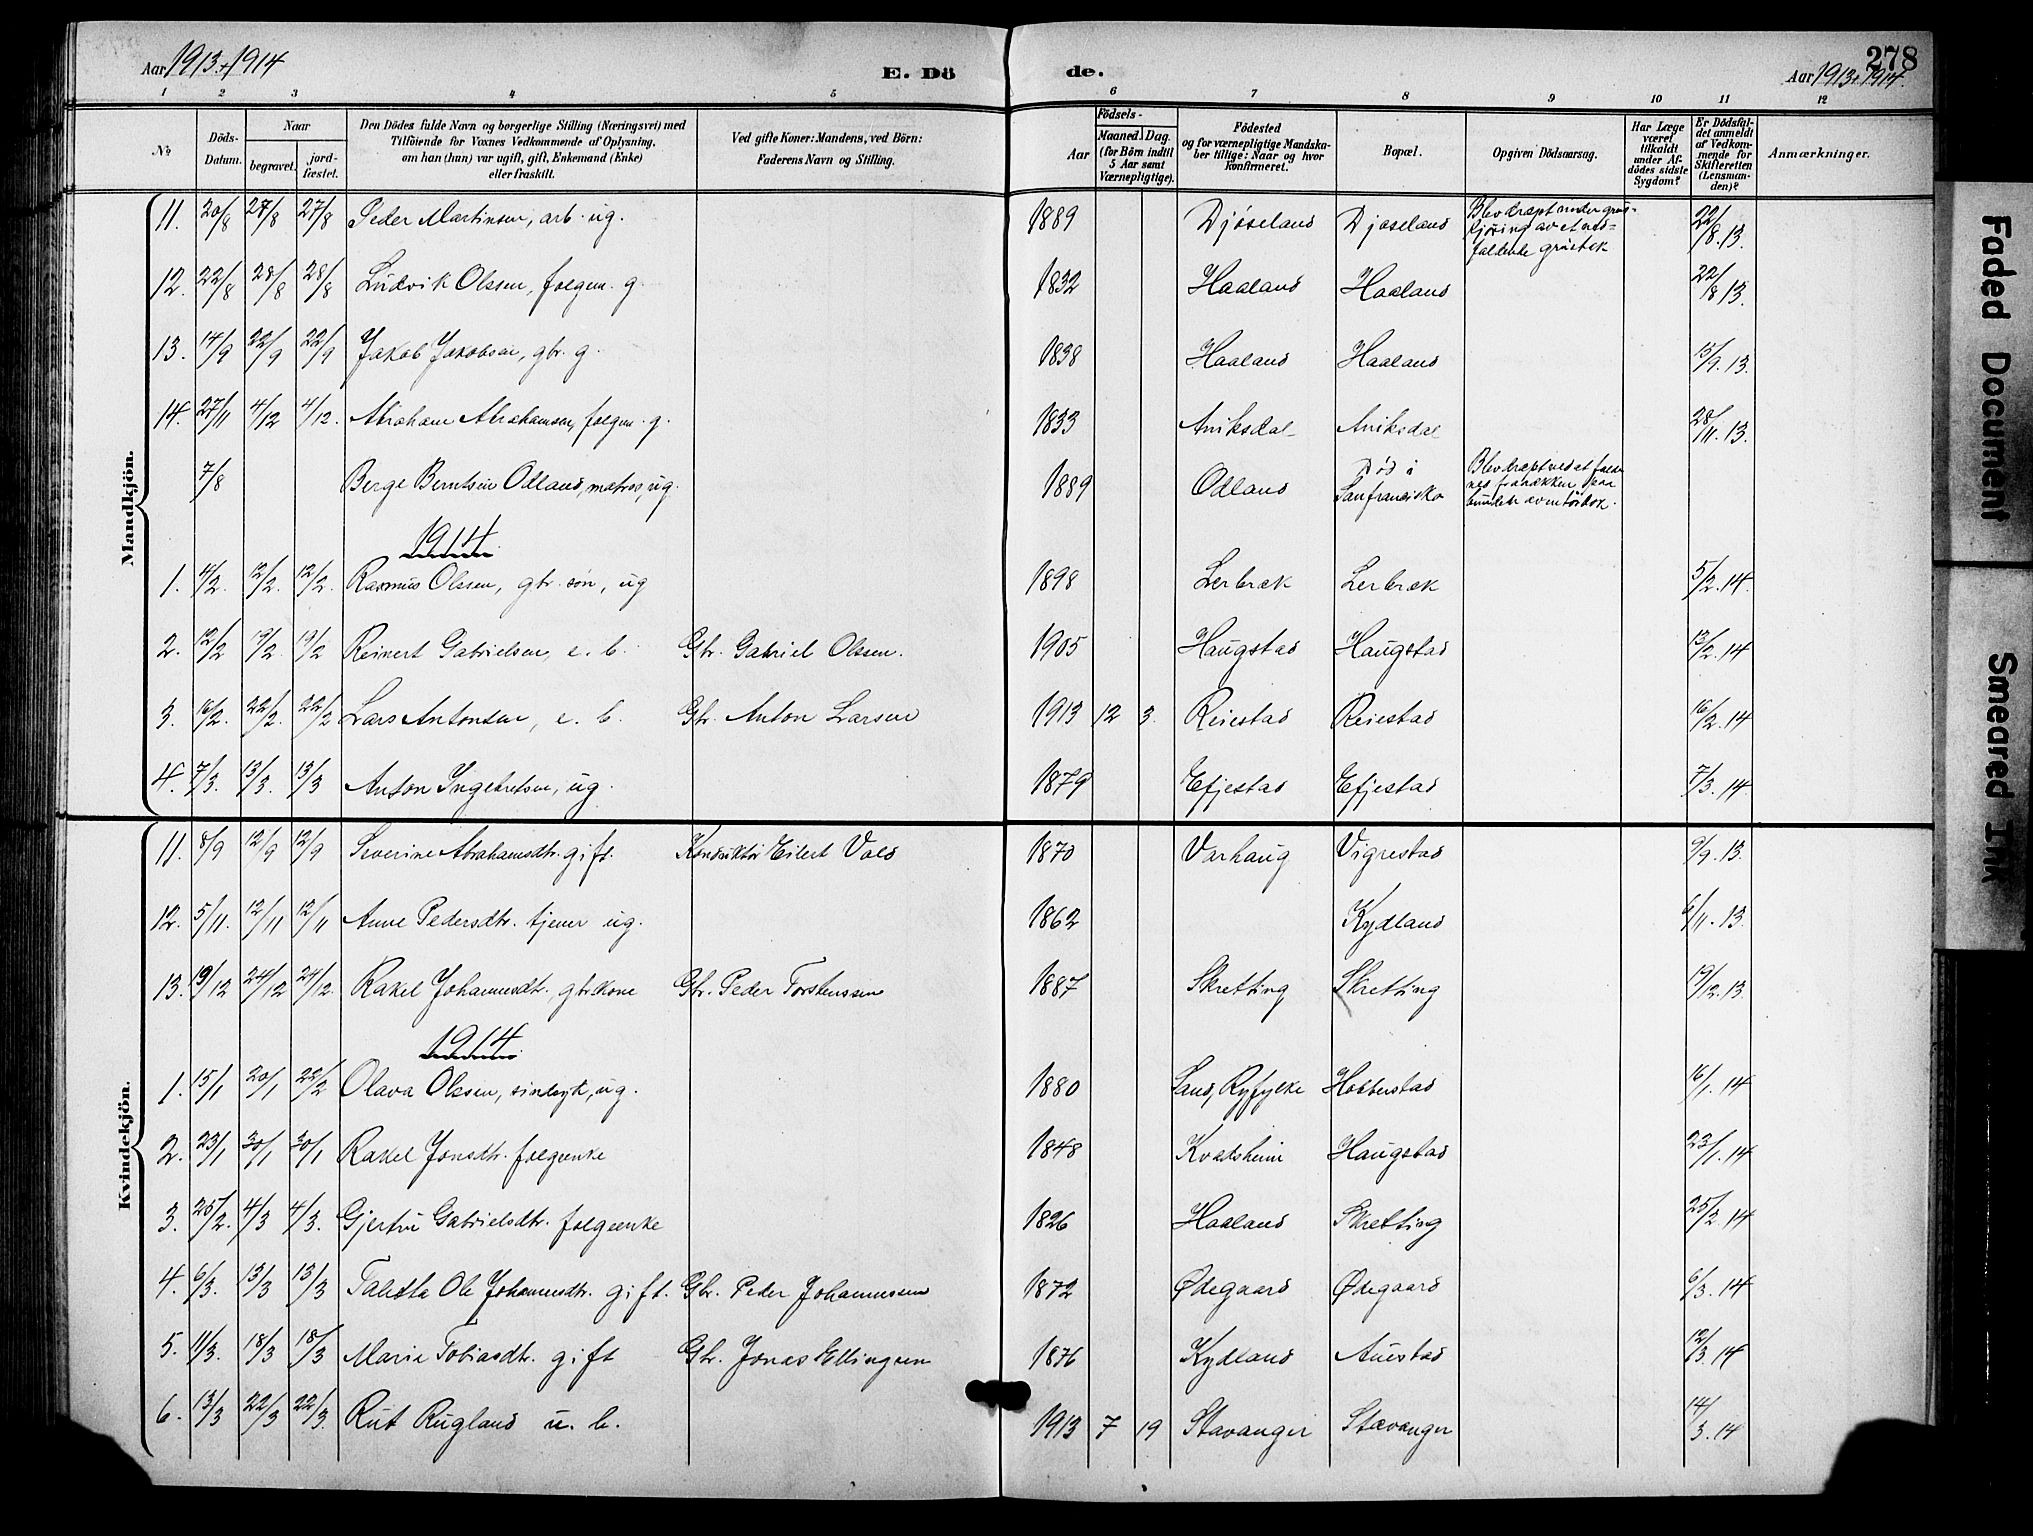 Aar 1913+1914
E. Dö de.
278
Aar 1913+1914.
1 2 3 4 5 6 7 8 9 10 11 12
No
Döds-Datum.
Naar
begravet.
jord-fæstet.
Den Dödes fulde Navn og borgerlige Stilling (Næringsvei) med
Tilföiende for Voxnes Vedkommende af Oplysning,
om han (hun) var ugift, gift, Enkemand (Enke)
eller fraskilt.
Ved gifte Koner: Mandens, ved Börn:
Faderens Navn og Stilling.
Födsels-
Aar
Maaned. Dag.
(for Börn indtil
5 Aar samt
Værnepligtige).
Födested
og for værnepligtige Mandska-
ber tillige: Naar og hvor
konfirmeret.
Bopæl.
Opgiven Dödsaarsag.
Har Læge
været
tilkaldt
under Af-
dödes sidste
Sygdom?
Er Dödsfal-
det anmeldt
af Vedkom-
mende for
Skifteretten
(Lensman-
den)?
Anmærkninger.
Mandkjön.
11. 20/8 27/8 27/8 Peder Martinsen, arb. ug. 1889 Djöseland Djöseland Blev dræpt under grus- kjöring av et ned- faldende grustak 22/8. 13.
12. 22/8 28/8 28/8 Ludvik Olssen, folgem. g. 1832 Haaland Haaland 22/8 13.
13. 14/9 22/9 22/9 Jakob Jakobsen, gbr. g. 1838 Haaland Haaland 15/9. 13.
14. 27/11 4/12 4/12. Abraham Abrahamsen, folgem. g. 1833 Aniksdal Aniksdal 28/11. 13.
7/8 Berge Berntsen Odland, matros, ug. 1889 Odland Död i Sanfransisko Blev dræpt ved at falde ned fra
1914
1. 4/2. 12/2. 12/2. Rasmus Olssen, gbr. sön, ug 1898 Lerbræk Lerbræk 5/2. 14.
2. 12/2 19/2. 19/2 Reinert Gabrielsen, e. b. Gbr. Gabriel Olssen. 1905 Haugstad Haugstad 13/2. 14
3. 16/2. 22/2. 22/2 Lars Antonsen, e. b. Gbr. Anton Larsen 1913 12 3. Reiestad Reiestad 16/2. 14
4. 7/3. 13/3. 13/3 Anton Ingebretsen, ug. 1879 Efjestad Efjestad 7/3. 14.
Kvindekjön.
11. 8/9 12/9 12/9 Severine Abrahamsdtr. gift. Konduktör Eilert Vold 1870 Varhaug Vigrestad 9/9. 13.
12. 5/11. 12/11 12/11 Anne Pedersdtr. tjener ug. 1862 Kydland 6/11. 13.
13. 19/12 24/12 24/12. Rakel Johannesdtr. gbrkone Gbr. Peder Torstenssen 1887 Skretting Skretting 19/12. 13.
1914
1. 15/1 20/1 22/2 Olava Olssen, sindsyk, ug. 1880 Sand, Ryfylke Hobberstad 16/1. 14
2. 23/1 30/1 30/1 Rakel Jonsdtr. folgeenke 1848 Kvadsheim Haugstad 23/1. 14
3. 25/2. 4/3 4/3. Gjertru Gabrielsdtr. folgeenke 1826 Haaland Skretting 25/2. 14
4. 6/3. 13/3 13/3 Talétta Ol. Johannesdtr. gift. Gbr. Peder Johannessen 1872 Ødegaard Ødegaard 6/3. 14
5. 11/3. 18/3 18/3 Marie Tobiasdtr. gift Gbr. Jonas Ellingsen 1876 Kydland Auestad 12/3. 14
6. 13/3 22/3 22/3. Rut Rugland u. b. 1913 7 19 Stavanger Stavanger 14/3. 14
Faded Document
Smeared Ink